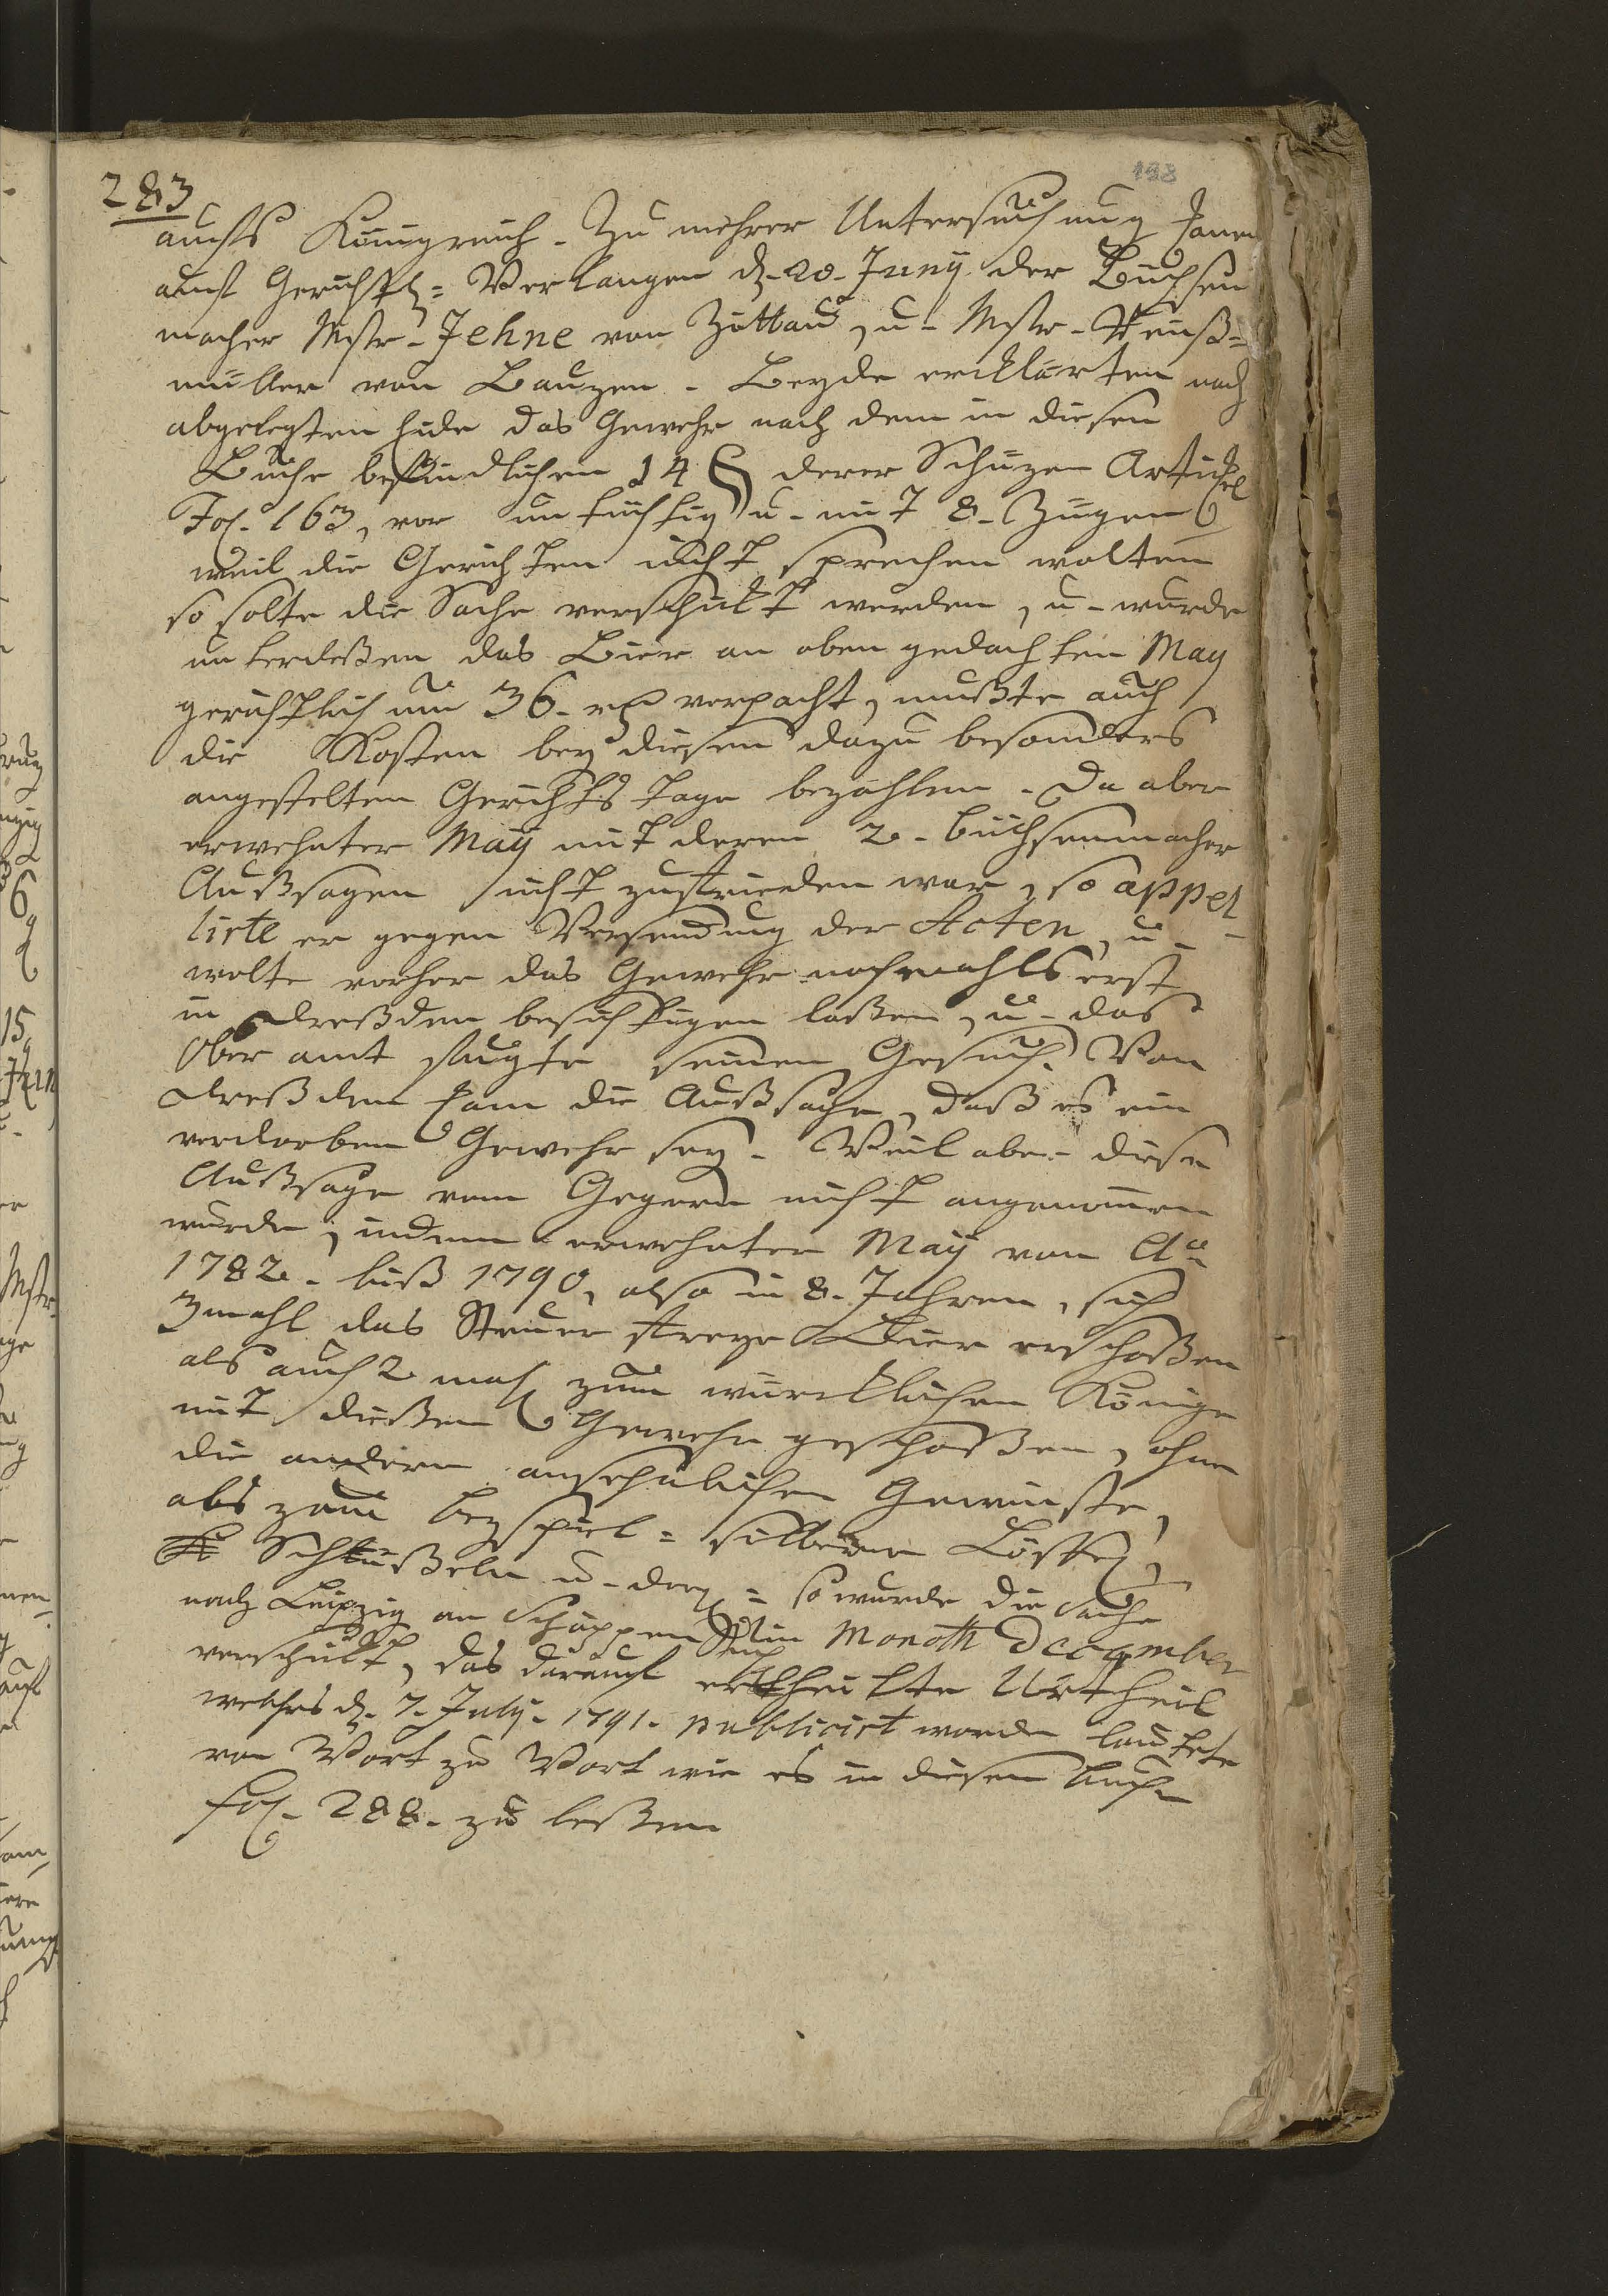 283
198
aufs Königreich. Zu mehrer Untersuchung kamen
auf Gerichtl= Verlangen d. 20. Juny der Büchsen
macher Mstr. Jehne von Zittau, u. Mstr.
müller von Bauzen. Beyde erklärten nach
abgelegten Eide das Gewehr nach dem in diesen
Buche befindlichen 14 § derer Schüzen Artickel
Fol. 163, vor untüchtig u. mit 8. Zügen
weil die Gerichten nicht sprechen wolten
so solte die Sache verschickt werden, u. wurde
unterdeßen das Bier an oben gedachten May
gerichtlich um 36. rl verpacht, mußte auch
die Kosten bey diesen dazu besonders
angestelten Gerichts tage bezahlen. Da aber
erwehnter Maÿ mit deren 2. Büchsenmacher
Außsagen nicht zufrieden war, so appel
lirte er gegen Versendung der Acten, u.
wolte vorher das Gewehr nochmahls erst
in Dreßden besichtigen laßen, u. das
Ober amt fügte seinen Gesuch. Von
Dreßden kam die Außsage, daß es ein
verdorben Gewehr sey. Weil aber diese
Außsage vom Gegern nicht angenomen
wurde, indem erwehnter Maÿ von Ao
1782. biß 1790, also in 8. Jahren, sich
3mahl das Steuer freye Bier erschoßen
als auch 2 mahl zum würcklichen Könige
mit dießen Gewehr geschoßen, ohne
die andern ansehnlichen Gewinste,
als zum Beyspiel= silberne Löffel,
Schüßeln u. dergl= so wurde die Sache
nach Leipzig an Schöppen Stuhl im Monath December
verschickt, das darauf ertheilte Urtheil
welches d. 7. July. 1791. publicirt worden lautete
von Wort zu Wort wie es in diesem Buche
fol. 288. zu leßen